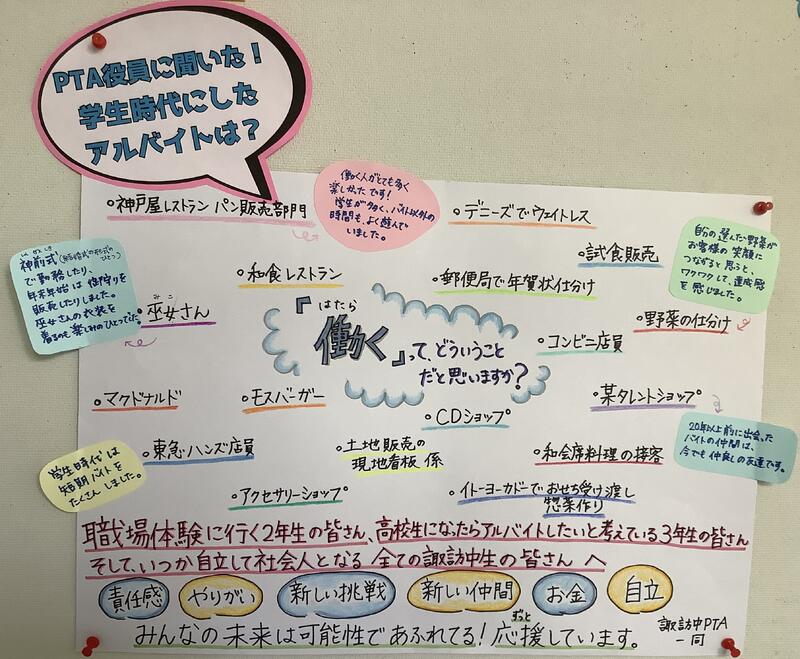 PTA役員に聞いた！
学生時代にした
アルバイトは？
働く人がとても多く
楽しかったです！
学生が多く、バイト以外の
時間も、よく遊んで
いました。
•神戸屋レストラン パン販売部門
•デニーズでウェイトレス
•試食販売
自分の選んだ野菜が
お客様の笑顔に
つながると思うと、
ワクワクして、達成感
を感じました。
•和食レストラン
•郵便局で年賀状仕分け
神前式(結婚式の形式のひとつ)
で勤務したり、
年末年始は
販売したりしました。
巫女さんの衣装を
着るのも楽しみのひとつでした。
みこ
•巫女さん
•野菜の仕分け
•コンビニ店員
はたら
『働く』って、どういうこと
だと思いますか？
•マクドナルド
•モスバーガー
•某タレントショップ
•CDショップ
20年以上前に出会った
バイトの仲間は、
今でも仲良しの友達です。
•東急ハンズ店員
•土地販売の
現地看板係
•和会席料理の接客
学生時代は
短期バイトを
たくさんしました。
•アクセサリーショップ
•イトーヨーカドーでおせち受け渡し
惣菜作り
職場体験に行く2年生の皆さん、高校生になったらアルバイトしたいと考えている3年生の皆さん
そして、いつか自立して社会人となる 全ての諏訪中生の皆さん へ
責任感 やりがい 新しい挑戦 新しい仲間 お金 自立
ずっと
みんなの未来は可能性であふれてる！応援しています。
諏訪中PTA
一同